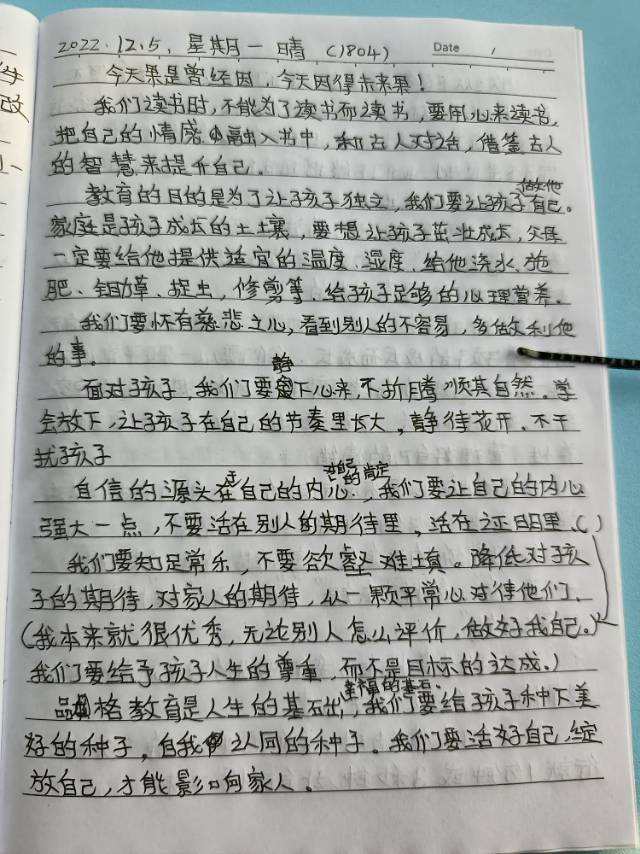 2022.12.5. 星期一 晴 (1804) Date
今天果是曾经因，今天因得未来果！
我们读书时，不能为了读书而读书，要用心来读书，
把自己的情感融入书中，和古人对话，借鉴古人
的智慧来提升自己。
教育的目的是为了让孩子独立，我们要让孩子做他自己。
家庭是孩子成长的土壤，要想让孩子茁壮成长，父母
一定要给他提供适宜的温度、湿度、给他浇水、施
肥、锄草、捉虫，修剪等、给孩子足够的心理营养。
我们要怀有慈悲之心，看到别人的不容易，多做利他
的事。
面对孩子，我们要静下心来，不折腾顺其自然。学
会放下，让孩子在自己的节奏里长大，静待花开、不干
扰孩子
自信的源头在于自己的内心对自己的肯定，我们要让自己的内心
强大一点，不要活在别人的期待里，活在证明里、()
我们要知足常乐，不要欲壑难填。降低对孩
子的期待，对家人的期待，从一颗平常心对待他们、
(我本来就很优秀，无论别人怎么评价，做好我自己。)
我们要给予孩子人生的尊重，而不是目标的达成。)
品格教育是人生的基石，幸福的基石，我们要给孩子种下美
好的种子，自我认同的种子。我们要活好自己，绽
放自己，才能影响家人。